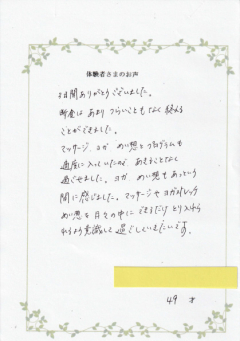 体験者さまのお声
4日間ありがとうございました。
断食は あまり つらいことも なく 終える
ことができました。
マッサージ、ヨガ めい想と プログラムも
適度に 入っていたので あきることなく
過ごせました。ヨガ めい想も あっという
間に感じました。マッサージや ヨガ
めい想を 日々の中に できるだけ とり入れら
れるよう 意識して 過ごしていきたいです。
49 才